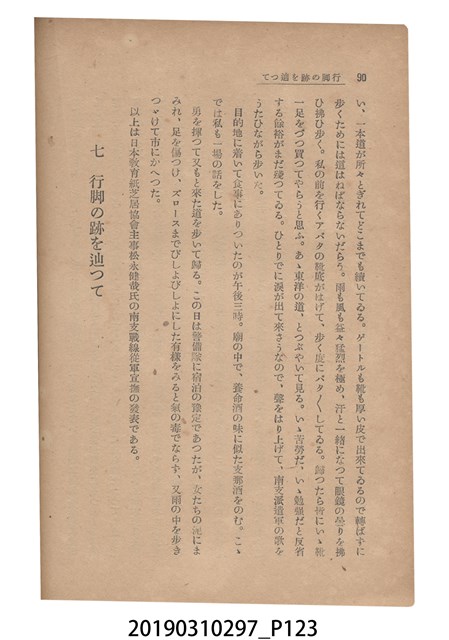 行脚の跡を辿つて
90
い、一本道が所々とぎれてどこまでも續いてゐる。ゲートルも靴も厚い皮で出來てゐるので轉ばずに
歩くためには道はねばならないだらう。雨も風も益々猛烈を極め、汗と一緒になつて眼鏡の曇りを拂
ひ拂ひ歩く。私の前を行くアバタの靴底がはげて、歩く度にバタ〱してゐる。歸つたら皆にいゝ靴
一足をづつ買つてやらうと思ふ。あゝ東洋の道、とつぶやいて見る。いゝ苦勞だ、いゝ勉強だと反省
する餘裕がまだ殘つてゐる。ひとりでに涙が出て來さうなので、聲をはり上げて、南支派遣軍の歌を
うたひながら歩いた。
目的地に着いて食事にありついたのが午後三時。廟の中で、養命酒の味に似た支那酒をのむ。こゝ
では私も一場の話をした。
勇を揮つて又もと來た道を歩いて歸る。この日は警備隊に宿泊の豫定であつたが、女たちの泥にま
みれ、足を傷つけ、ズロースまでびしよびしよにした有樣をみると氣の毒でならず、又雨の中を歩き
つゞけて市にかへつた。
以上は日本教育紙芝居協會主事松永健哉氏の南支戰線從軍宣撫の發表である。
七 行脚の跡を辿つて
20190310297_P123